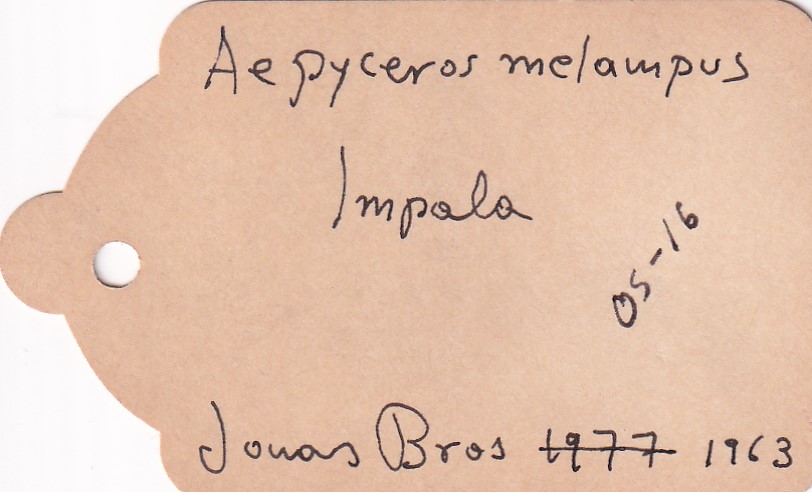 Aepyceros melampus
Impala
05-16
Jonas Bros 1977 1963